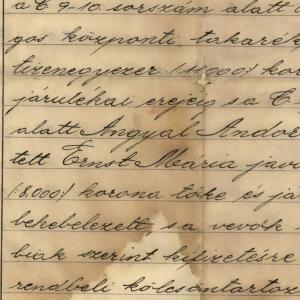 a C. 9-10. sorszám alatt a
gos központi takarék
tizenegyezer /:11000:/ ko
járulékai erejéig s a C.
alatt Angyal Andor
tett Ernst Mária jav
/:8000:/ korona tőke és já
bekebelezett s a vevők
biak szerint kifizetésre
rendbeli kölcsöntartoz